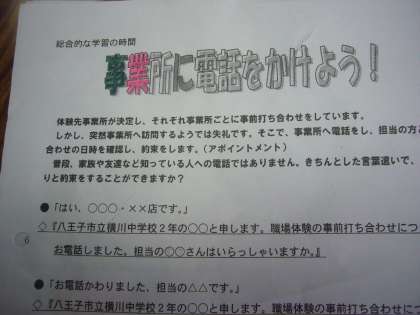 総合的な学習の時間
事業所に電話をかけよう！
体験先事業所が決定し、それぞれ事業所ごとに事前打ち合わせをしています。
しかし、突然事業所へ訪問するようでは失礼です。そこで、事業所へ電話をし、担当の方と
合わせの日時を確認し、約束をします。（アポイントメント）
普段、家族や友達など知っている人への電話ではありません。きちんとした言葉遣いで、
りと約束をすることができますか？
●「はい、○○○・××店です。」
◇『八王子市立横川中学校２年の○○と申します。職場体験の事前打ち合わせにつ
お電話しました。担当の○○さんはいらっしゃいますか。』
●「お電話かわりました、担当の△△です。」
◇『八王子市立横川中学校２年の○○と申します。職場体験の事前打ち合わせに